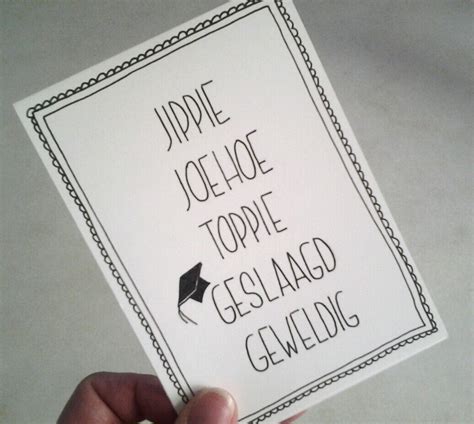 JIPPIE
JOEHOE
TOPPIE
GESLAAGD
GEWELDIG